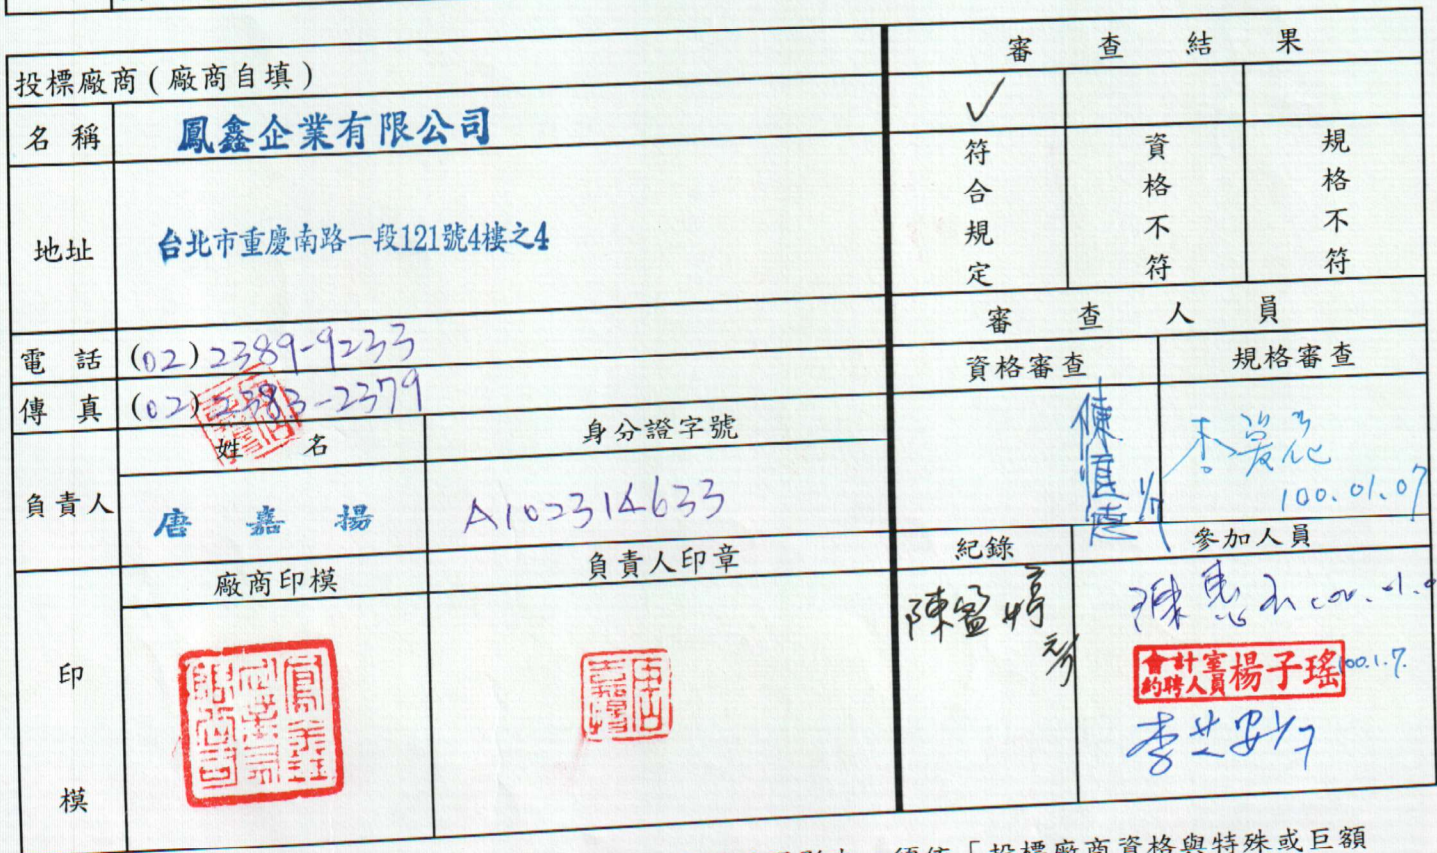 投標廠商(廠商自填)
名稱 鳳鑫企業有限公司
地址 台北市重慶南路一段121號4樓之4
電話 (02)2389-9233
傳真 (02)2383-2379
負責人
姓名 身分證字號
唐嘉揚 A102314633
印模
廠商印模 負責人印章
唐嘉揚
審查結果
✓
符合規定 資格不符 規格不符
審查人員
資格審查 規格審查
100.01.07
紀錄 參加人員
陳盈婷
會計室
約聘人員 楊子瑤 100.1.7.
須依「投標廠商資格與特殊或巨額